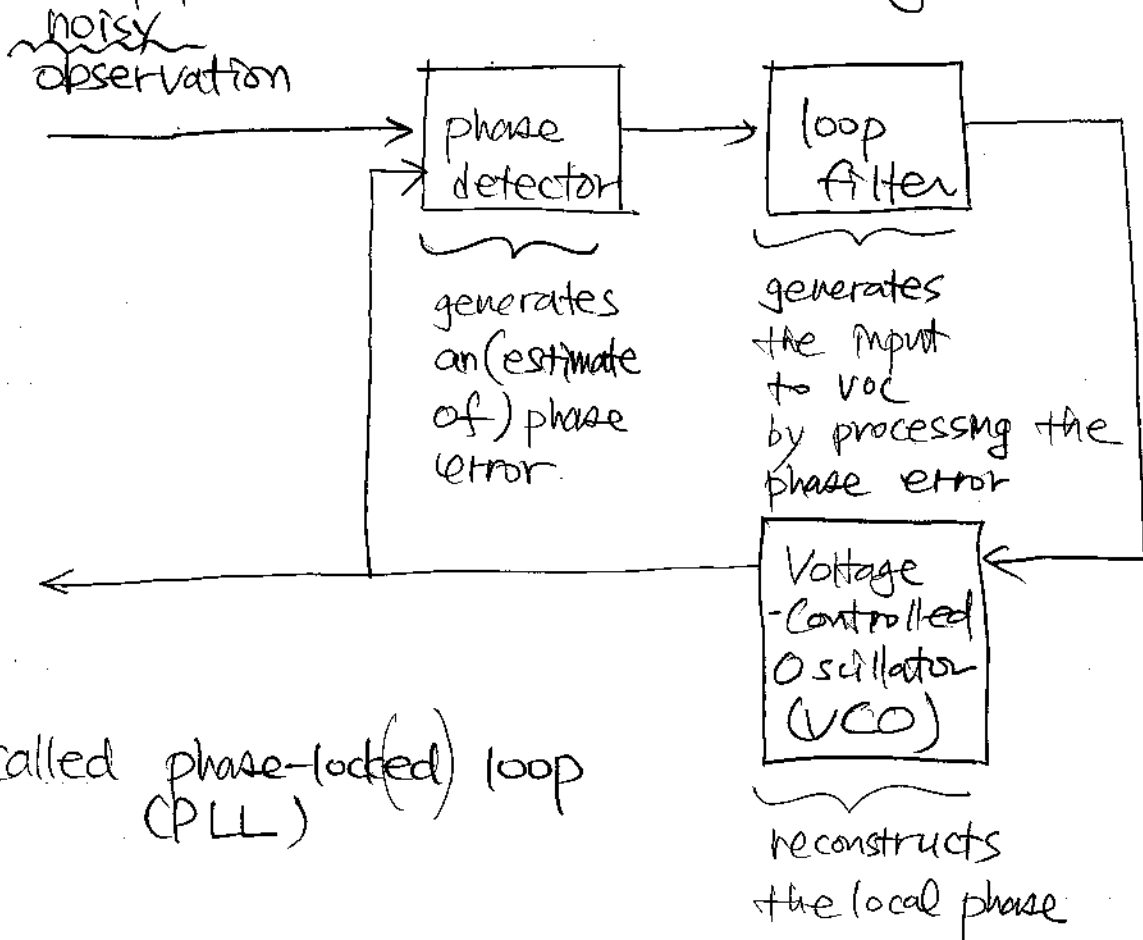 noisy
observation
phase
detector
loop
filter
generates
an (estimate
of) phase
error.
generates
the input
to VOC
by processing the
phase error
Voltage
-Controlled
Oscillator
(VCO)
called phase-lock(ed) loop
(PLL)
reconstructs
the local phase